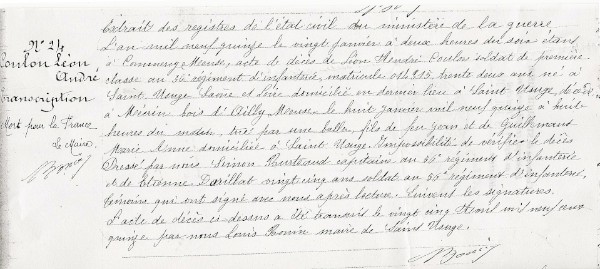 N° 24
Coulon Léon
André
Transcription
Mort pour la France
Le Maire,
Extrait des registres de l'état civil du ministère de la guerre
L'an mil neuf quinze le vingt janvier à deux heures du soir étant
à Meuse, acte de décès de Léon André Coulon soldat de première
classe au régiment d'infanterie, matricule trente deux ans né à
Saint Usuge Saone et Loire domicilié en dernier lieu à Saint Usuge, décédé
à bois d'Ailly Meuse le huit janvier mil neuf quinze à huit
heures du matin, tué par une balle, fils de feu Jean et de Guillemaut
Marie Anne domiciliée à Saint Usuge. Impossibilité de vérifier le décès
Dressé par nous Simon capitaine au régiment d'infanterie
et de Etienne vingt cinq ans soldat au régiment d'infanterie,
témoins qui ont signé avec nous après lecture. Suivent les signatures.
L'acte de décès ci-dessus a été transcrit le vingt cinq Avril mil neuf cent
quinze par nous Louis maire de Saint Usuge.